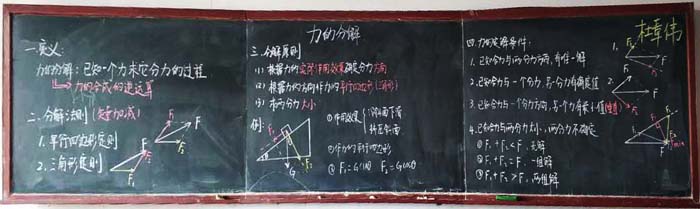 力的分解
一.定义:
力的分解:已知一个力求它分力的过程
力的合成的逆运算
二.分解法则(矢量加减)
1.平行四边形定则
2.三角形定则
F
F₁
F₂
三.分解原则
(1)根据力的实际作用效果确定分力方向
(2)根据力的方向作力的平行四边形(三角形)
(3)求分力大小
例:
F₁
F₂
G
θ
①作用效果
沿斜面下滑
挤压斜面
②作力的平行四边形
③ F₁=Gsinθ F₂=Gcosθ
四.力的定解条件:
1.已知合力与两分力方向,有唯一解
2.已知合力与一个分力,另一分力有确定值
3.已知合力与一个分力方向,另一个力有最小值
4.已知合力与两分力大小,两分力不确定
① F₁+F₂<F,无解
② F₁+F₂=F,一组解
③ F₁+F₂>F,两组解
1.
2.
3.
F
F₁
F₂